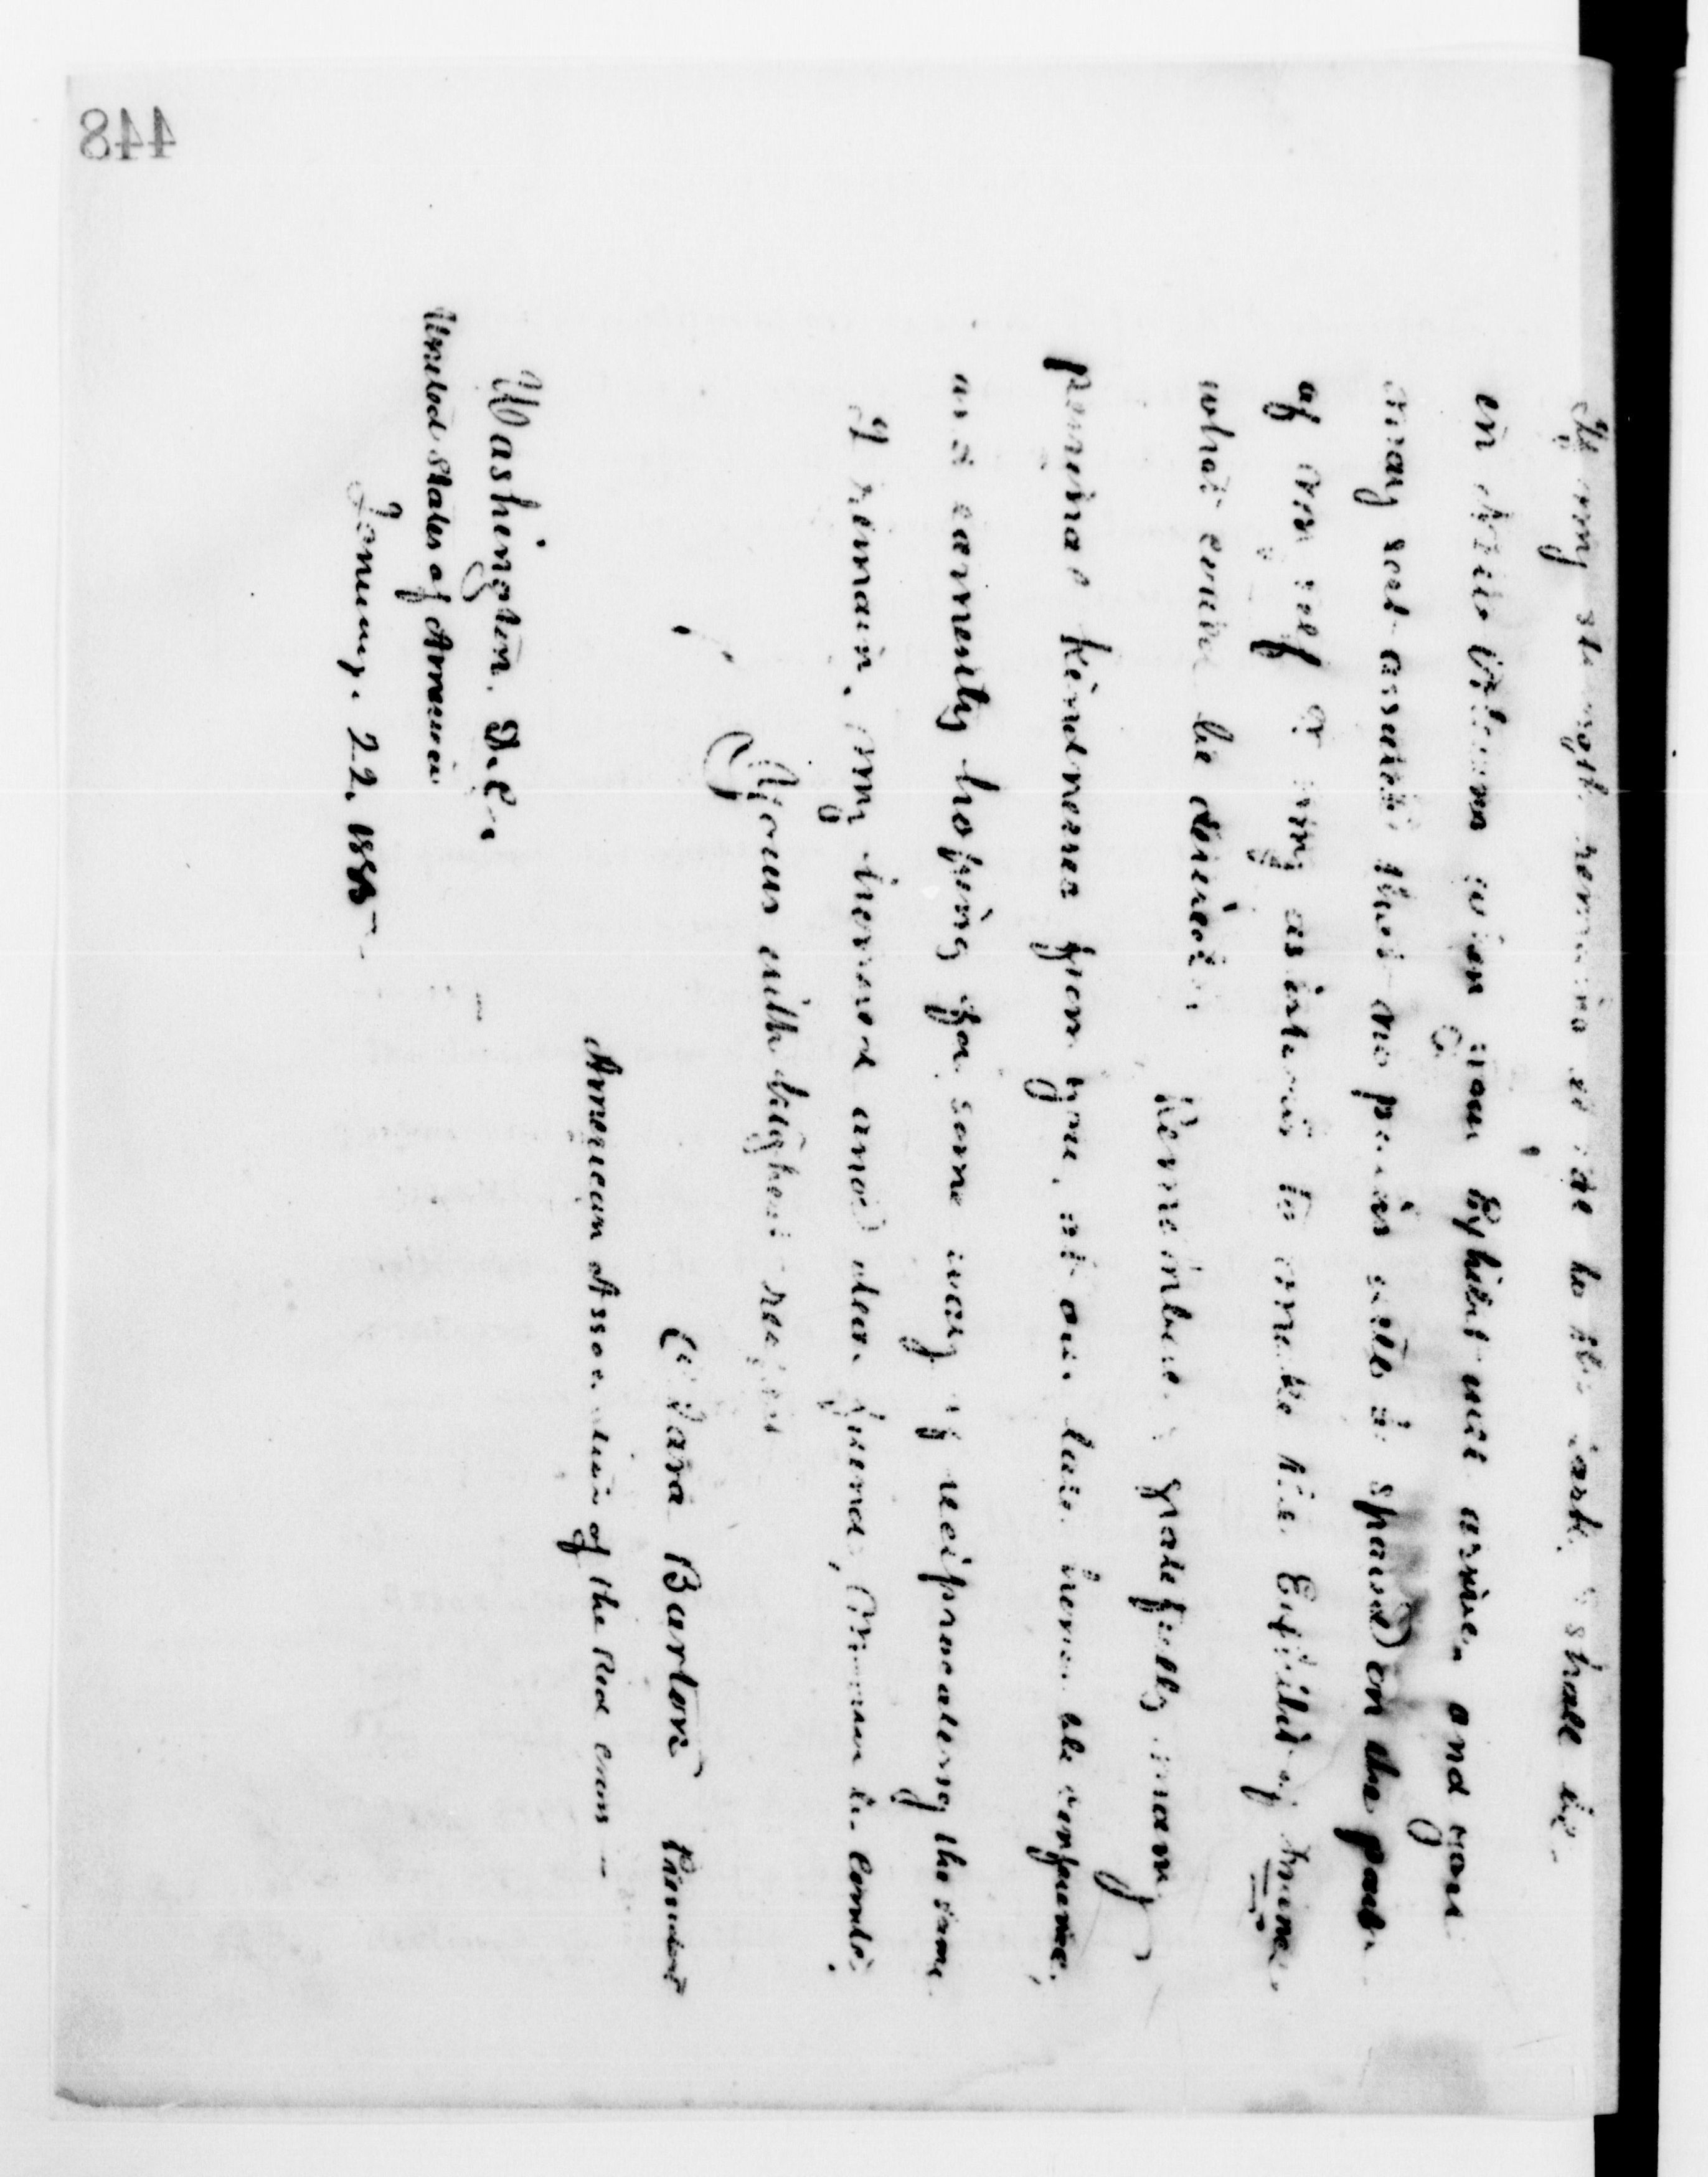 If my strength remains equal to the task, I shall be
in New Orleans when your Exhibit will arrive, and you
may rest assured that no pains will be spared on the part
of myself or my assistants to make the Exhibit of
what could be desired.
Remembering gratefully many
personal kindnesses from you, at our late honorable conference,
and earnestly hoping for some way of reciprocating the same
I remain, my honored and dear friend, Monsieur le Comte,
Yours with highest regard
Clara Barton President
American Association of the Red Cross –
Washington. D.C.
United States of America
January. 22. 1885
448